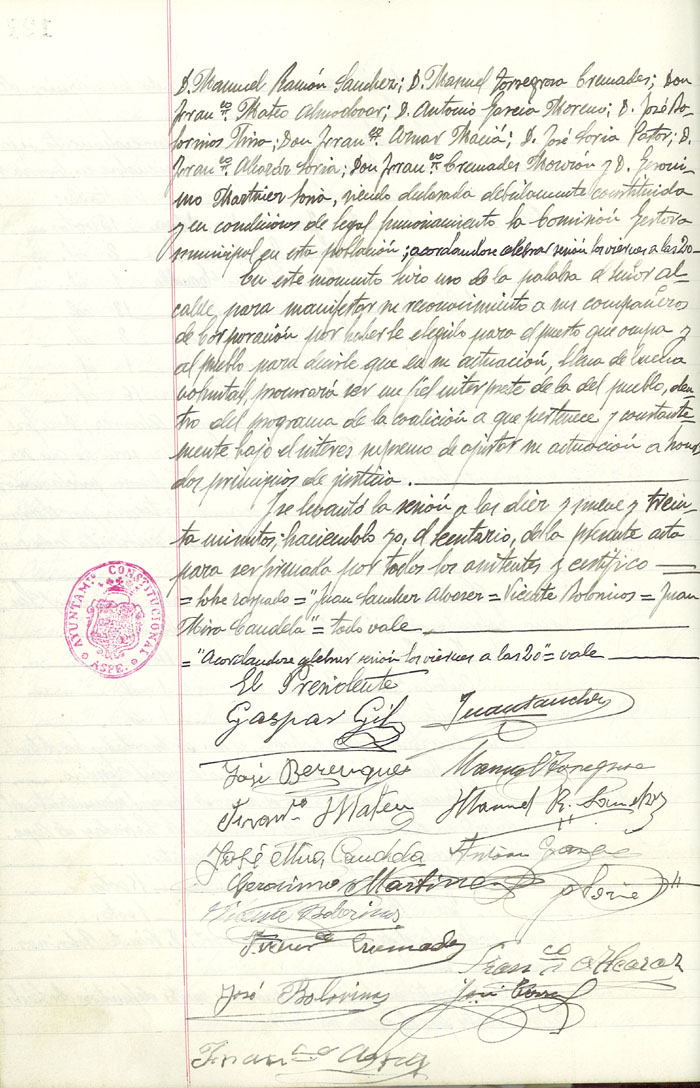 D. Manuel Ramón Sanchez; D. Manuel Torregrosa Cremades; Don
Fran.co Mateo Almodovar; D. Antonio Garcia Moreno; D. José Bo-
tornos Mira; Don Fran.co Aznar Maciá; D. José Soria Pastor; D.
Fran.co Alcaráz Soria; Don Fran.co Cremades Morcón y D. Geroni-
mo Martinez Soria, siendo declarada debidamente constituida
y en condiciones de legal funcionamiento la Comision Gestora
municipal en esta población; acordandose celebrar sesión los viernes a las 20-
En este momento hizo uso de la palabra el señor al-
calde, para manifestar su reconocimiento a sus compañeros
de Corporación por haberle elegido para el puesto que ocupa y
al pueblo para decirle que en su actuación, llena de buena
voluntad, procurará ser un fiel interprete de la del pueblo, den-
tro del programa de la coalición a que pertenece y constante-
mente bajo el interes supremo de ajustar su actuación a hon-
dos principios de justicia.
Y se levantó la sesión a las diez y nueve y trein-
ta minutos; haciendolo yo, el secretario, de la presente acta
para ser firmada por todos los asistentes y certifico
= Sobre raspado = "Juan Sanchez Alvarez = Vicente Bolorinos = Juan
Mira Candela" = todo vale
= "Acordandose celebrar sesión los viernes a las 20" = vale
AYUNTAM.to CONSTITUCIONAL
ASPE.
El Presidente
Gaspar Gil Juan Sanchez
José Berenguer Manuel Torregrosa
Fran.co Mateo Manuel R. Sanchez
José Mira Candela Antonio Garcia
Geronimo Martinez J. Soria
Vicente Bolorinos
Fran.co Cremades
Fran.co Alcaraz
José Bolorinos José
Fran.co Aznar